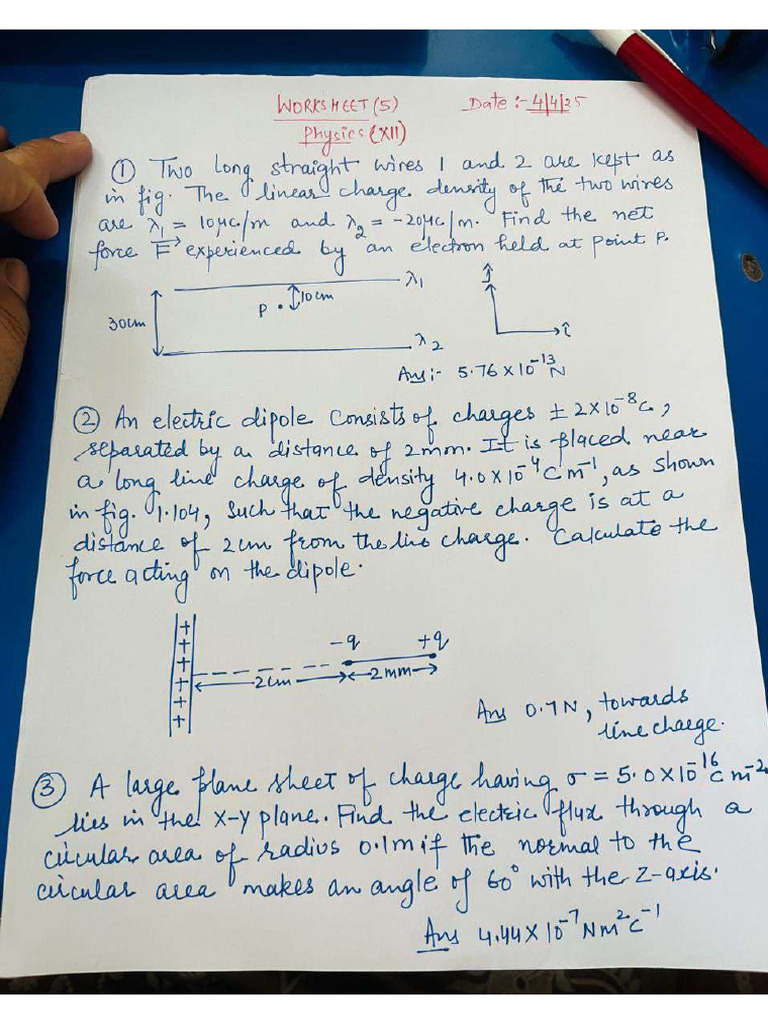 WORKSHEET (5) Date :- 4/4/25
Physics (XII)
① Two long straight wires 1 and 2 are kept as
in fig. The linear charge density of the two wires
are λ₁ = 10μc/m and λ₂ = -20μc/m. Find the net
force F⃗ experienced by an electron held at point P.
λ₁
10cm
P
30cm
λ₂
ĵ
î
Ans:- 5.76 × 10⁻¹³ N
② An electric dipole consists of charges ± 2×10⁻⁸c,
separated by a distance of 2mm. It is placed near
a long line charge of density 4.0×10⁻⁴ C m⁻¹, as shown
in fig. 1.104, such that the negative charge is at a
distance of 2cm from the line charge. Calculate the
force acting on the dipole.
-q +q
2cm 2mm
+
+
+
+
+
+
Ans 0.7N, towards
line charge.
③ A large plane sheet of charge having σ = 5.0×10⁻¹⁶ c m⁻²
lies in the x-y plane. Find the electric flux through a
circular area of radius 0.1m if the normal to the
circular area makes an angle of 60° with the z-axis.
Ans 4.44×10⁻⁷ Nm²C⁻¹